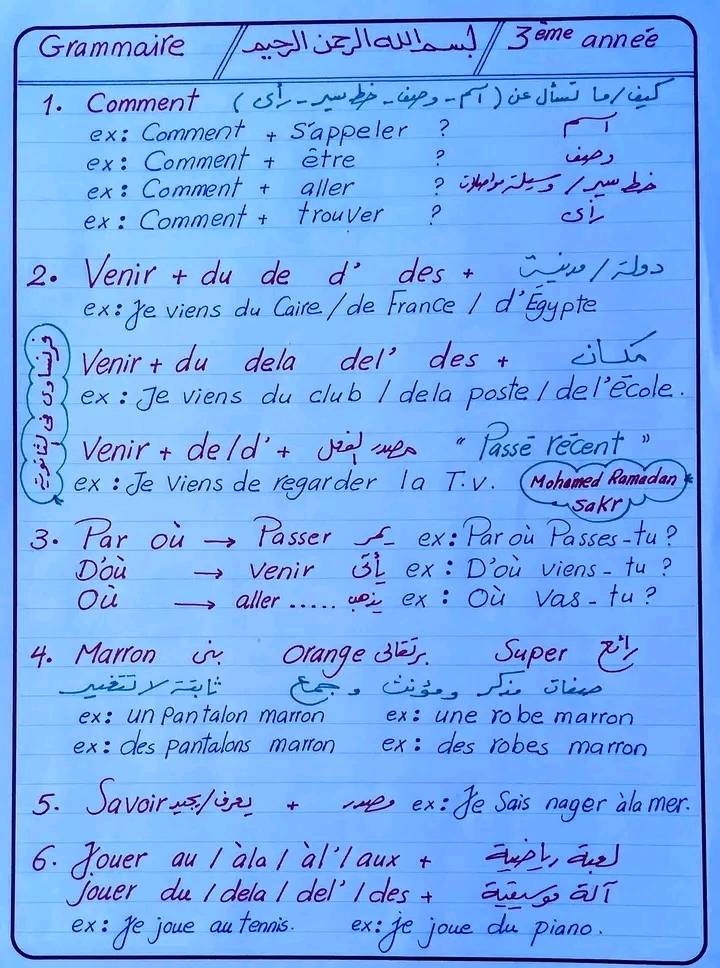 Grammaire // بسم الله الرحمن الرحيم // 3ème année
1. Comment كيف/ما تسأل عن (اسم - وصف - خط سير - رأى)
ex: Comment + S'appeler ? اسم
ex: Comment + être ? وصف
ex: Comment + aller ? خط سير / وسيلة مواصلات
ex: Comment + trouver ? رأى
2. Venir + du de d' des + دولة / مدينة
ex: Je viens du Caire / de France / d'Égypte
Venir + du dela del' des + مكان
ex: Je viens du club / dela poste / del'école.
Venir + de/d' + مصدر الفعل "Passé récent"
ex: Je viens de regarder la T.v.
فرنساوى فى الثانوية
Mohamed Ramadan
Sakr
3. Par où → Passer يمر ex: Par où Passes-tu ?
D'où → venir يأتى ex: D'où viens-tu ?
Où → aller ..... يذهب ex: Où vas-tu ?
4. Marron بنى Orange برتقالى Super رائع
صفات مذكر ومؤنث وجمع ثابتة لا تتغير
ex: un Pantalon marron ex: une robe marron
ex: des pantalons marron ex: des robes marron
5. Savoir يعرف/يجيد + مصدر ex: Je Sais nager àla mer.
6. Jouer au / àla / àl' / aux + لعبة رياضية
Jouer du / dela / del' / des + آلة موسيقية
ex: Je joue au tennis. ex: je joue du piano.